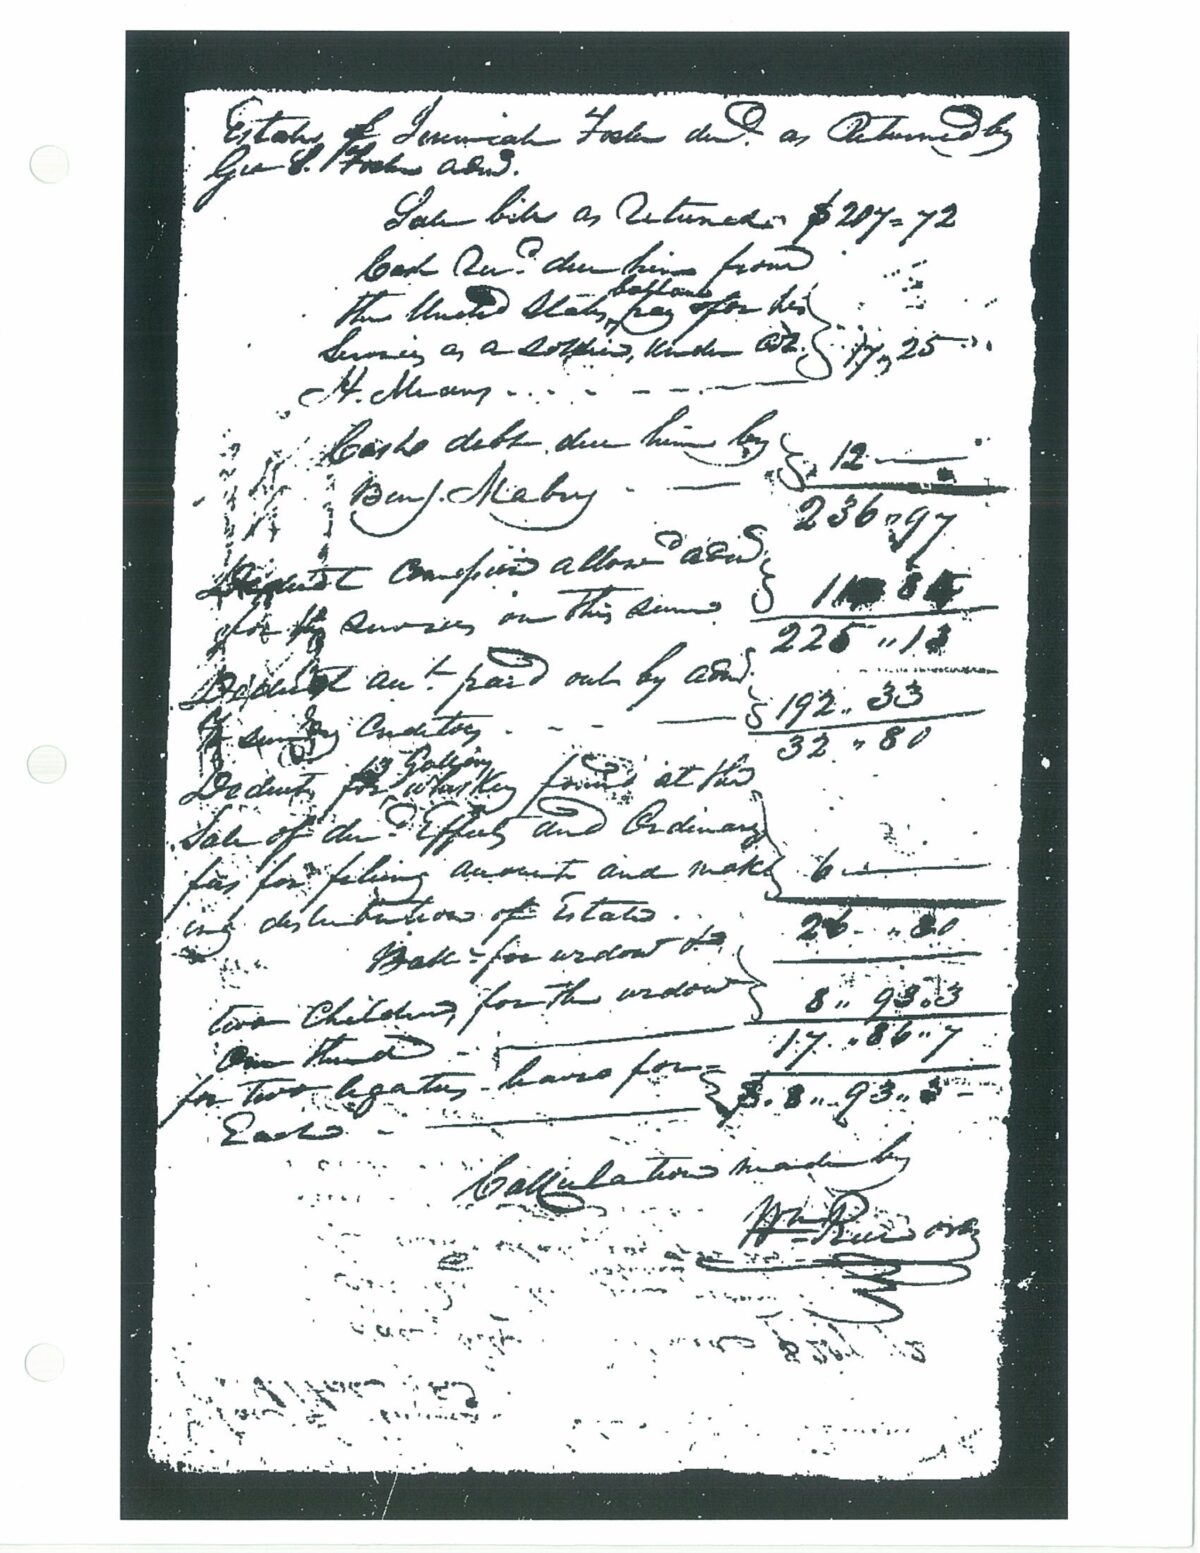 Estate of Jeremiah Foster decd. as Returned by
Geo C. Foster admr.
Sale bill as Returned $207=72
Cash Recd. due him from
the United States, pay for his
services as a soldier, under
H. Means . . . . - - - 17,,25
Cash debt due him by
Benj. Mabry - — 12 —
236,,97
Deduct allowd admr
for his services on this sum 11 84
225,,13
Deduct amt. paid out by admr.
to sundry Creditors . - - — 192,,33
32,,80
Deduct for 13 Gallons whiskey found at the
Sale of decd. Effects and Ordinary
fees for filing accounts and mak
ing distribution of Estate. 6 —
26,,80
Ball. for widow &
two Children, for the widow 8,,93,,3
One third - — 17,,86,,7
for two legatees - leaves for
Each - — $8,,93,,3 -
Calculation made by
Wm